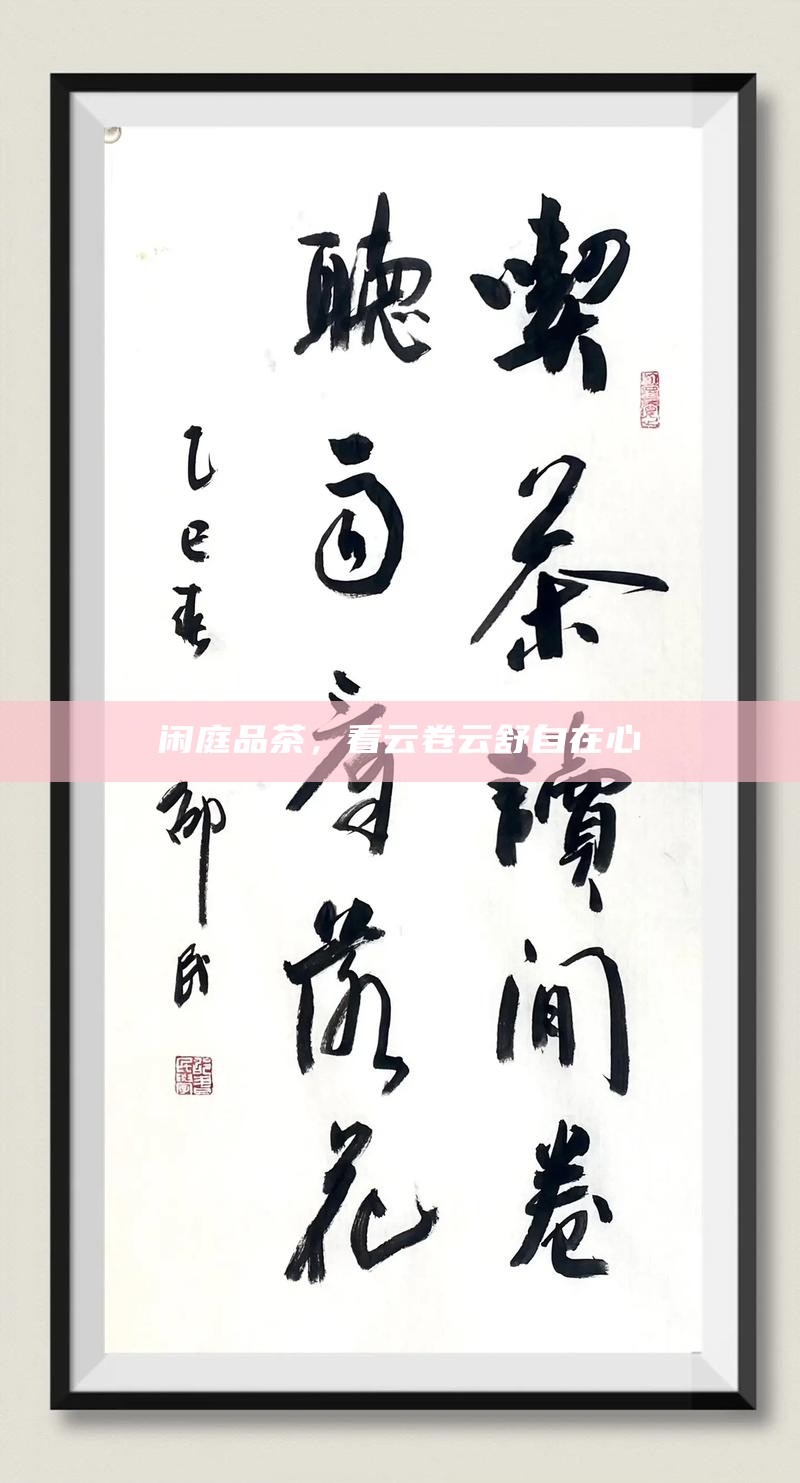 喫茶讀閒卷
聽雨尋落花
乙巳春
邵民
闲庭品茶，看云卷云舒自在心